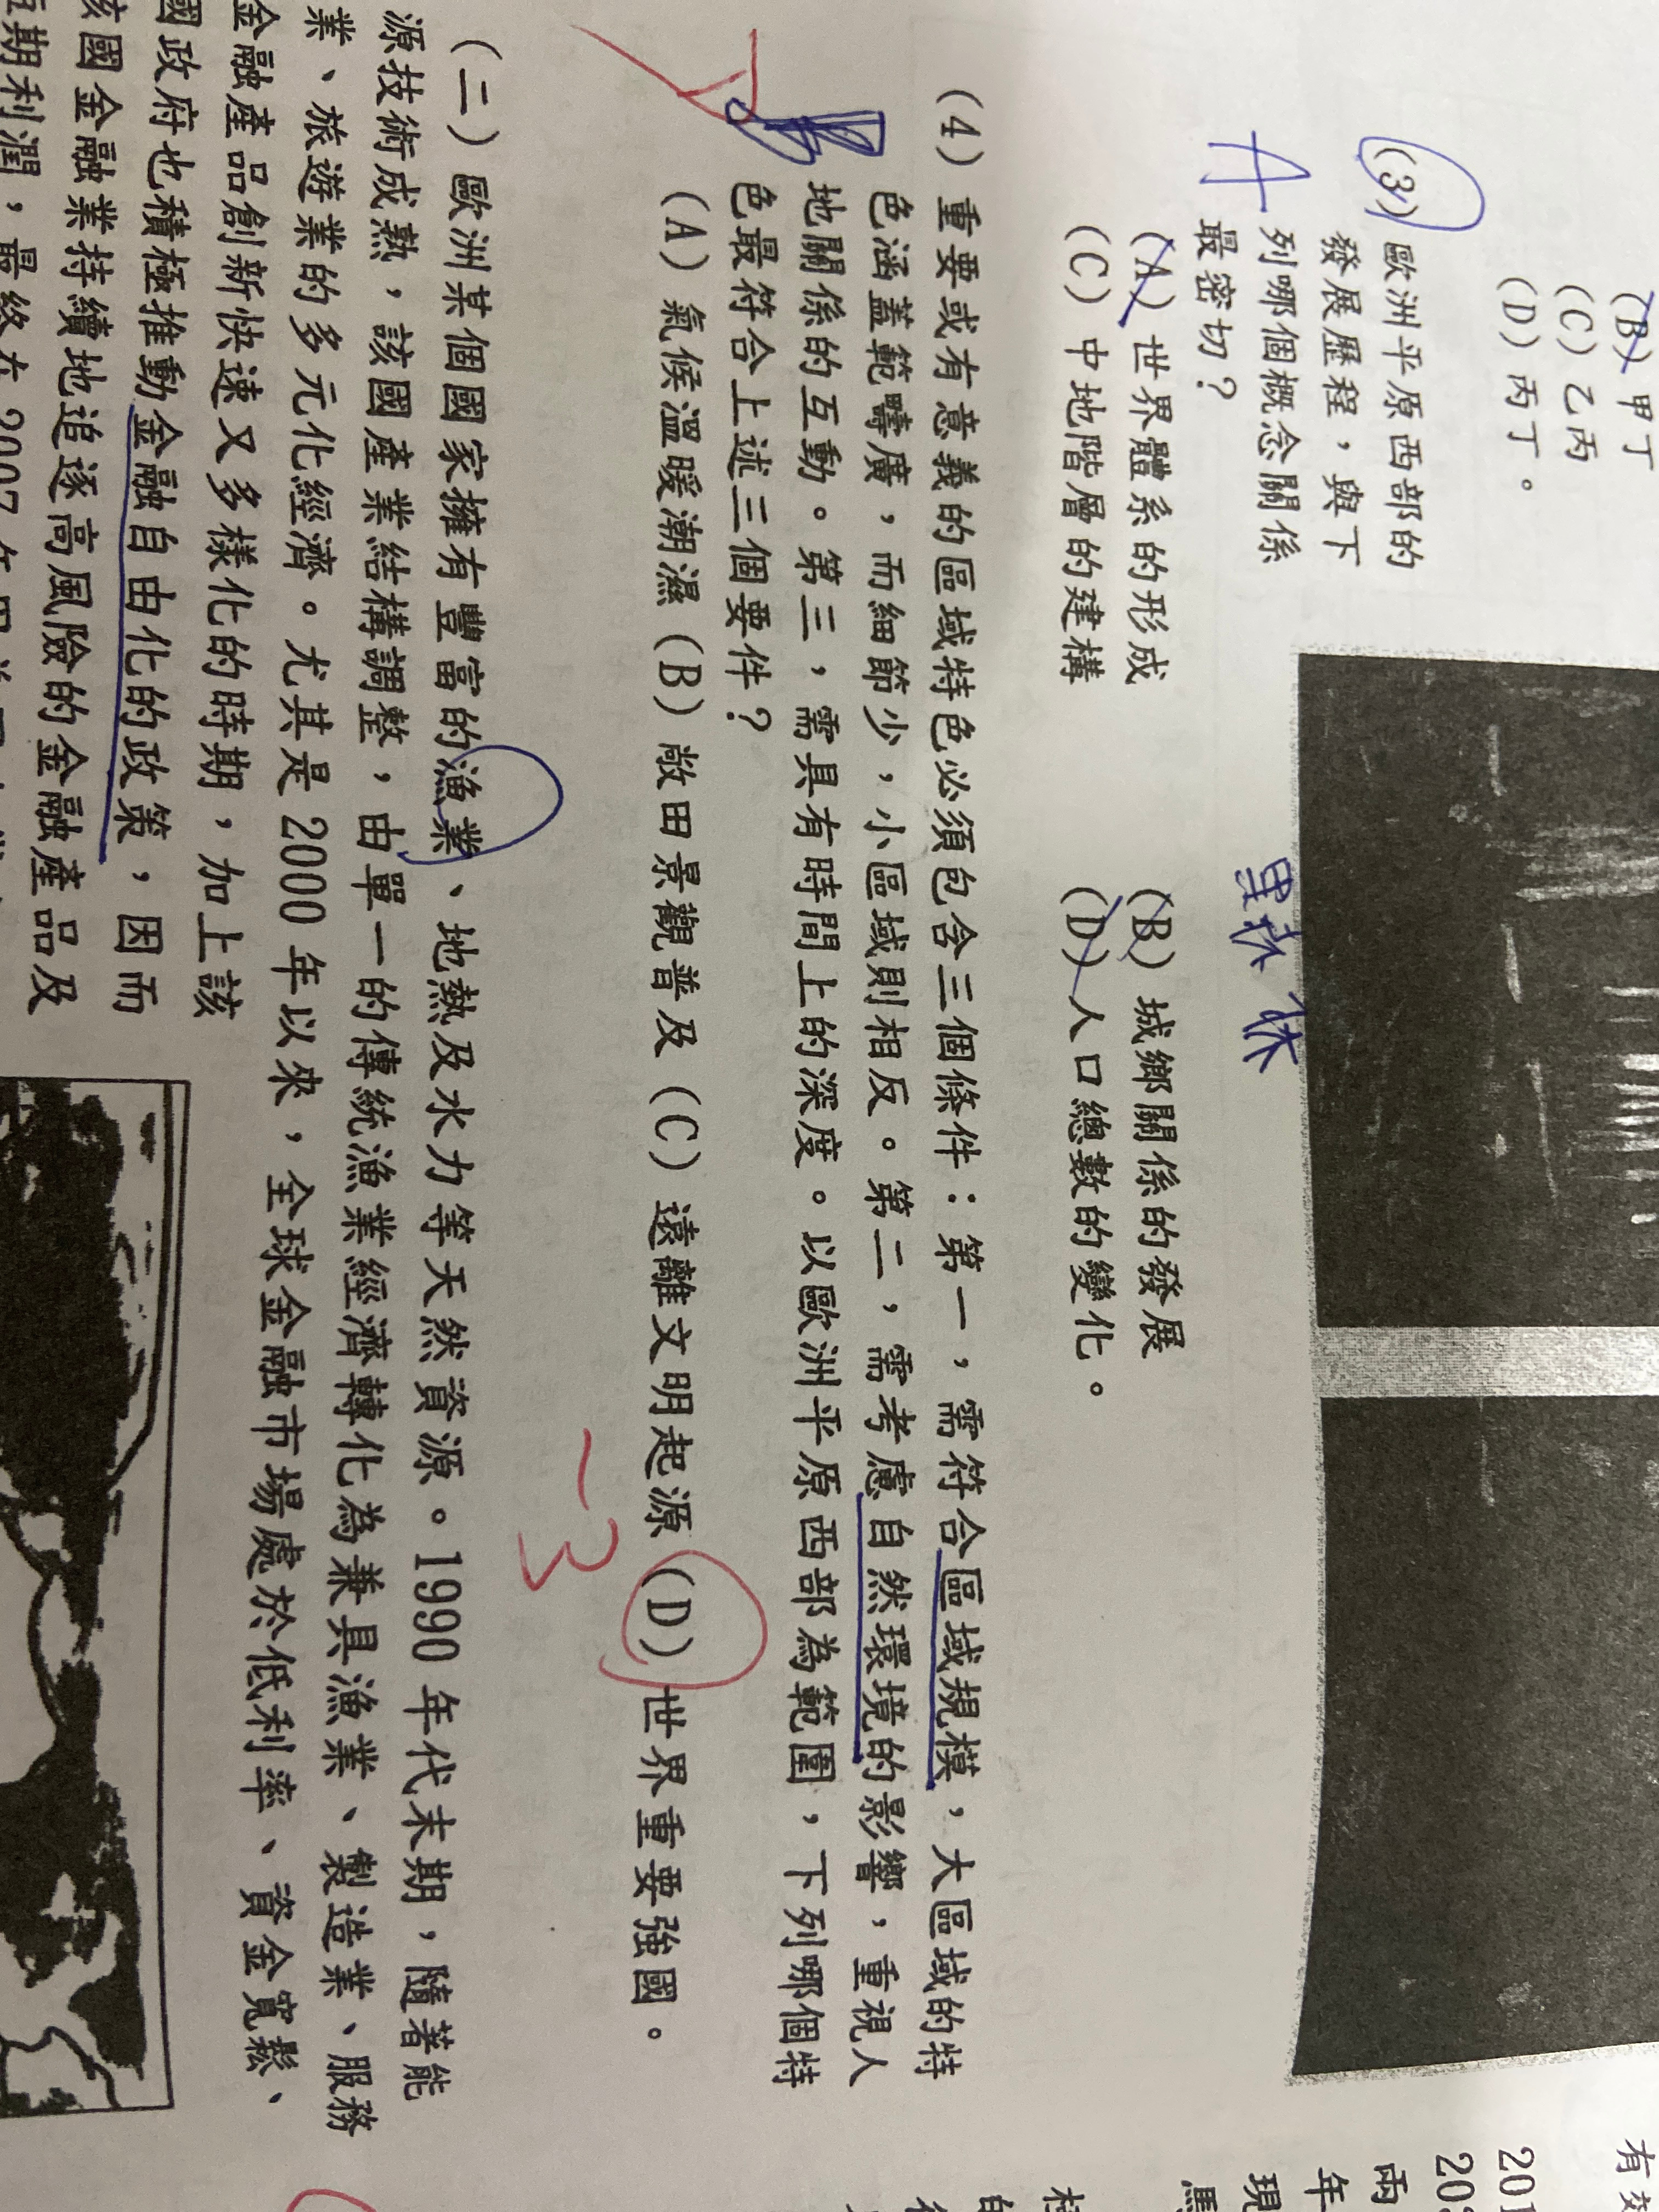 (B) 甲丁
(C) 乙丙
(D) 丙丁。
(3) 歐洲平原西部的
發展歷程，與下
列哪個概念關係
最密切？
A
(A) 世界體系的形成 (B) 城鄉關係的發展
(C) 中地階層的建構 (D) 人口總數的變化。
(4) 重要或有意義的區域特色必須包含三個條件：第一，需符合區域規模，大區域的特
色涵蓋範疇廣，而細節少，小區域則相反。第二，需考慮自然環境的影響，重視人
地關係的互動。第三，需具有時間上的深度。以歐洲平原西部為範圍，下列哪個特
色最符合上述三個要件？
(A) 氣候溫暖潮濕 (B) 敞田景觀普及 (C) 遠離文明起源 (D) 世界重要強國。
-3
(二) 歐洲某個國家擁有豐富的漁業、地熱及水力等天然資源。1990 年代末期，隨著能
源技術成熟，該國產業結構調整，由單一的傳統漁業經濟轉化為兼具漁業、製造業、服務
業、旅遊業的多元化經濟。尤其是 2000 年以來，全球金融市場處於低利率、資金寬鬆、
金融產品創新快速又多樣化的時期，加上該
國政府也積極推動金融自由化的政策，因而
該國金融業持續地追逐高風險的金融產品及
短期利潤，最終在 2007 年